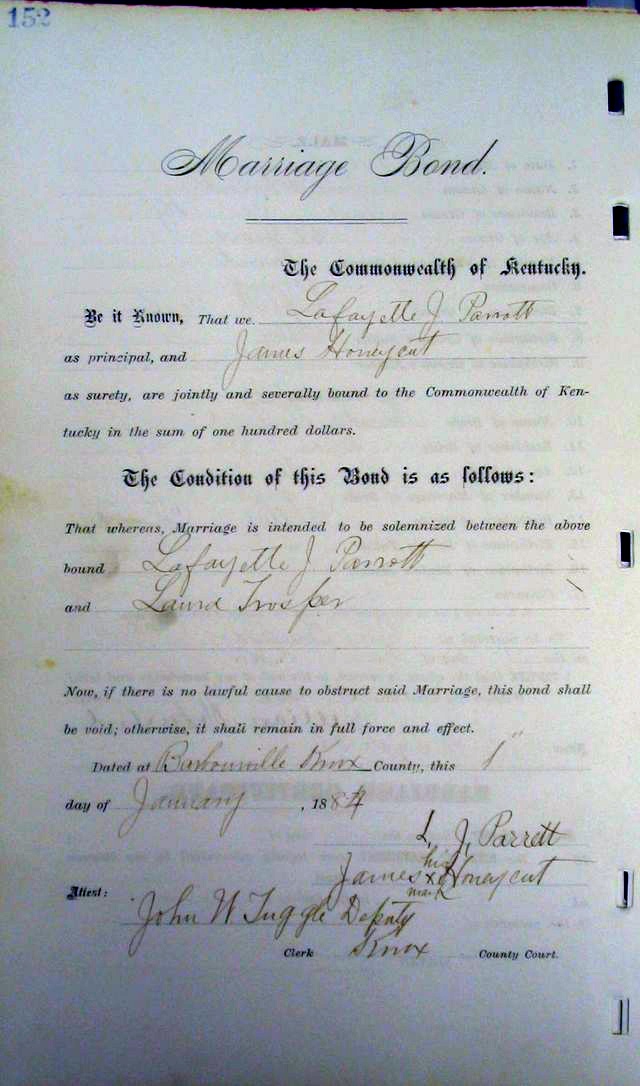 152
Marriage Bond.
The Commonwealth of Kentucky.
Be it Known, That we Lafayette J Parrott
as principal, and James Honeycut
as surety, are jointly and severally bound to the Commonwealth of Ken-
tucky in the sum of one hundred dollars.
The Condition of this Bond is as follows:
That whereas, Marriage is intended to be solemnized between the above
bound Lafayette J Parrott
and Laura Trosper
Now, if there is no lawful cause to obstruct said Marriage, this bond shall
be void; otherwise, it shall remain in full force and effect.
Dated at Barbourville Knox County, this 1"
day of January, 1884
L. J. Parrett
his
James x Honeycut
mark
Attest:
John W Tuggle Deputy
Clerk Knox County Court.